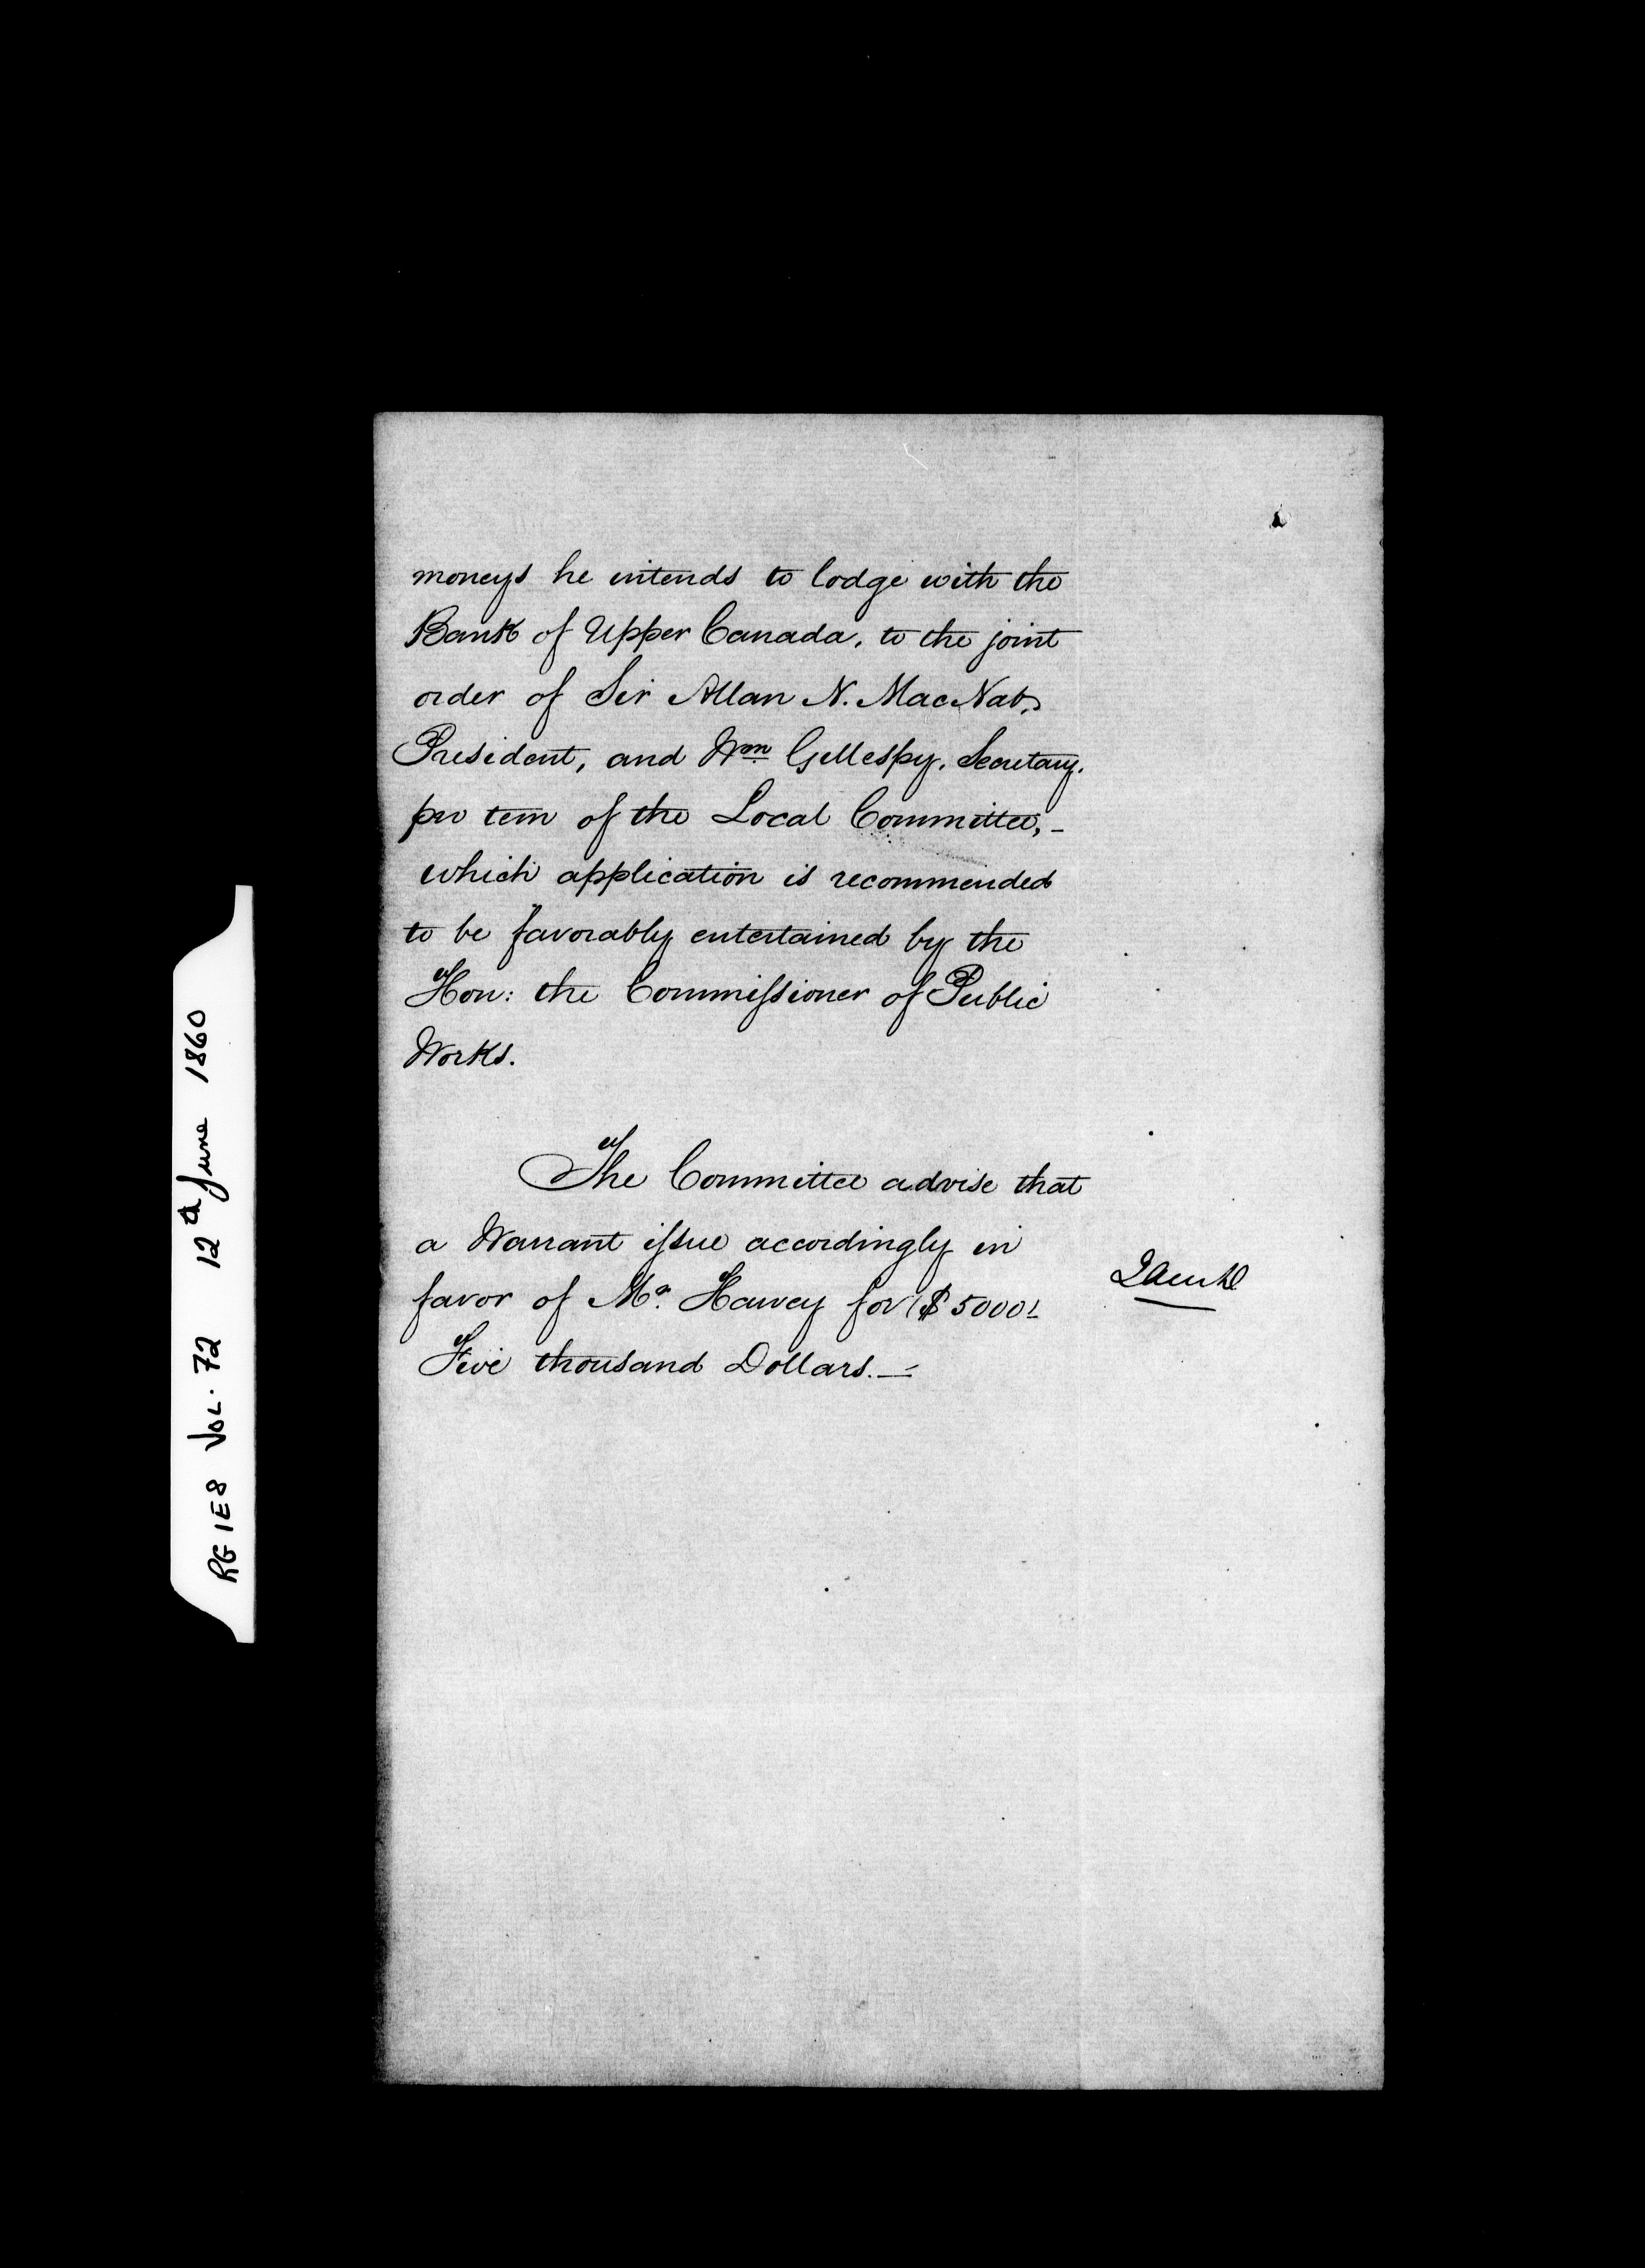 moneys he intends to lodge with the
Bank of Upper Canada, to the joint
order of Sir Allan N. MacNab,
President, and Wm Gillespy, Secretary.
pro tem of the Local Committee, -
which application is recommended
to be favorably entertained by the
Hon: the Commissioner of Public
Works.
The Committee advise that
a Warrant issue accordingly in
favor of Mr. Harvey for ($5000)
Five thousand Dollars. —
RG 1E8 VOL. 72 12th June 1860